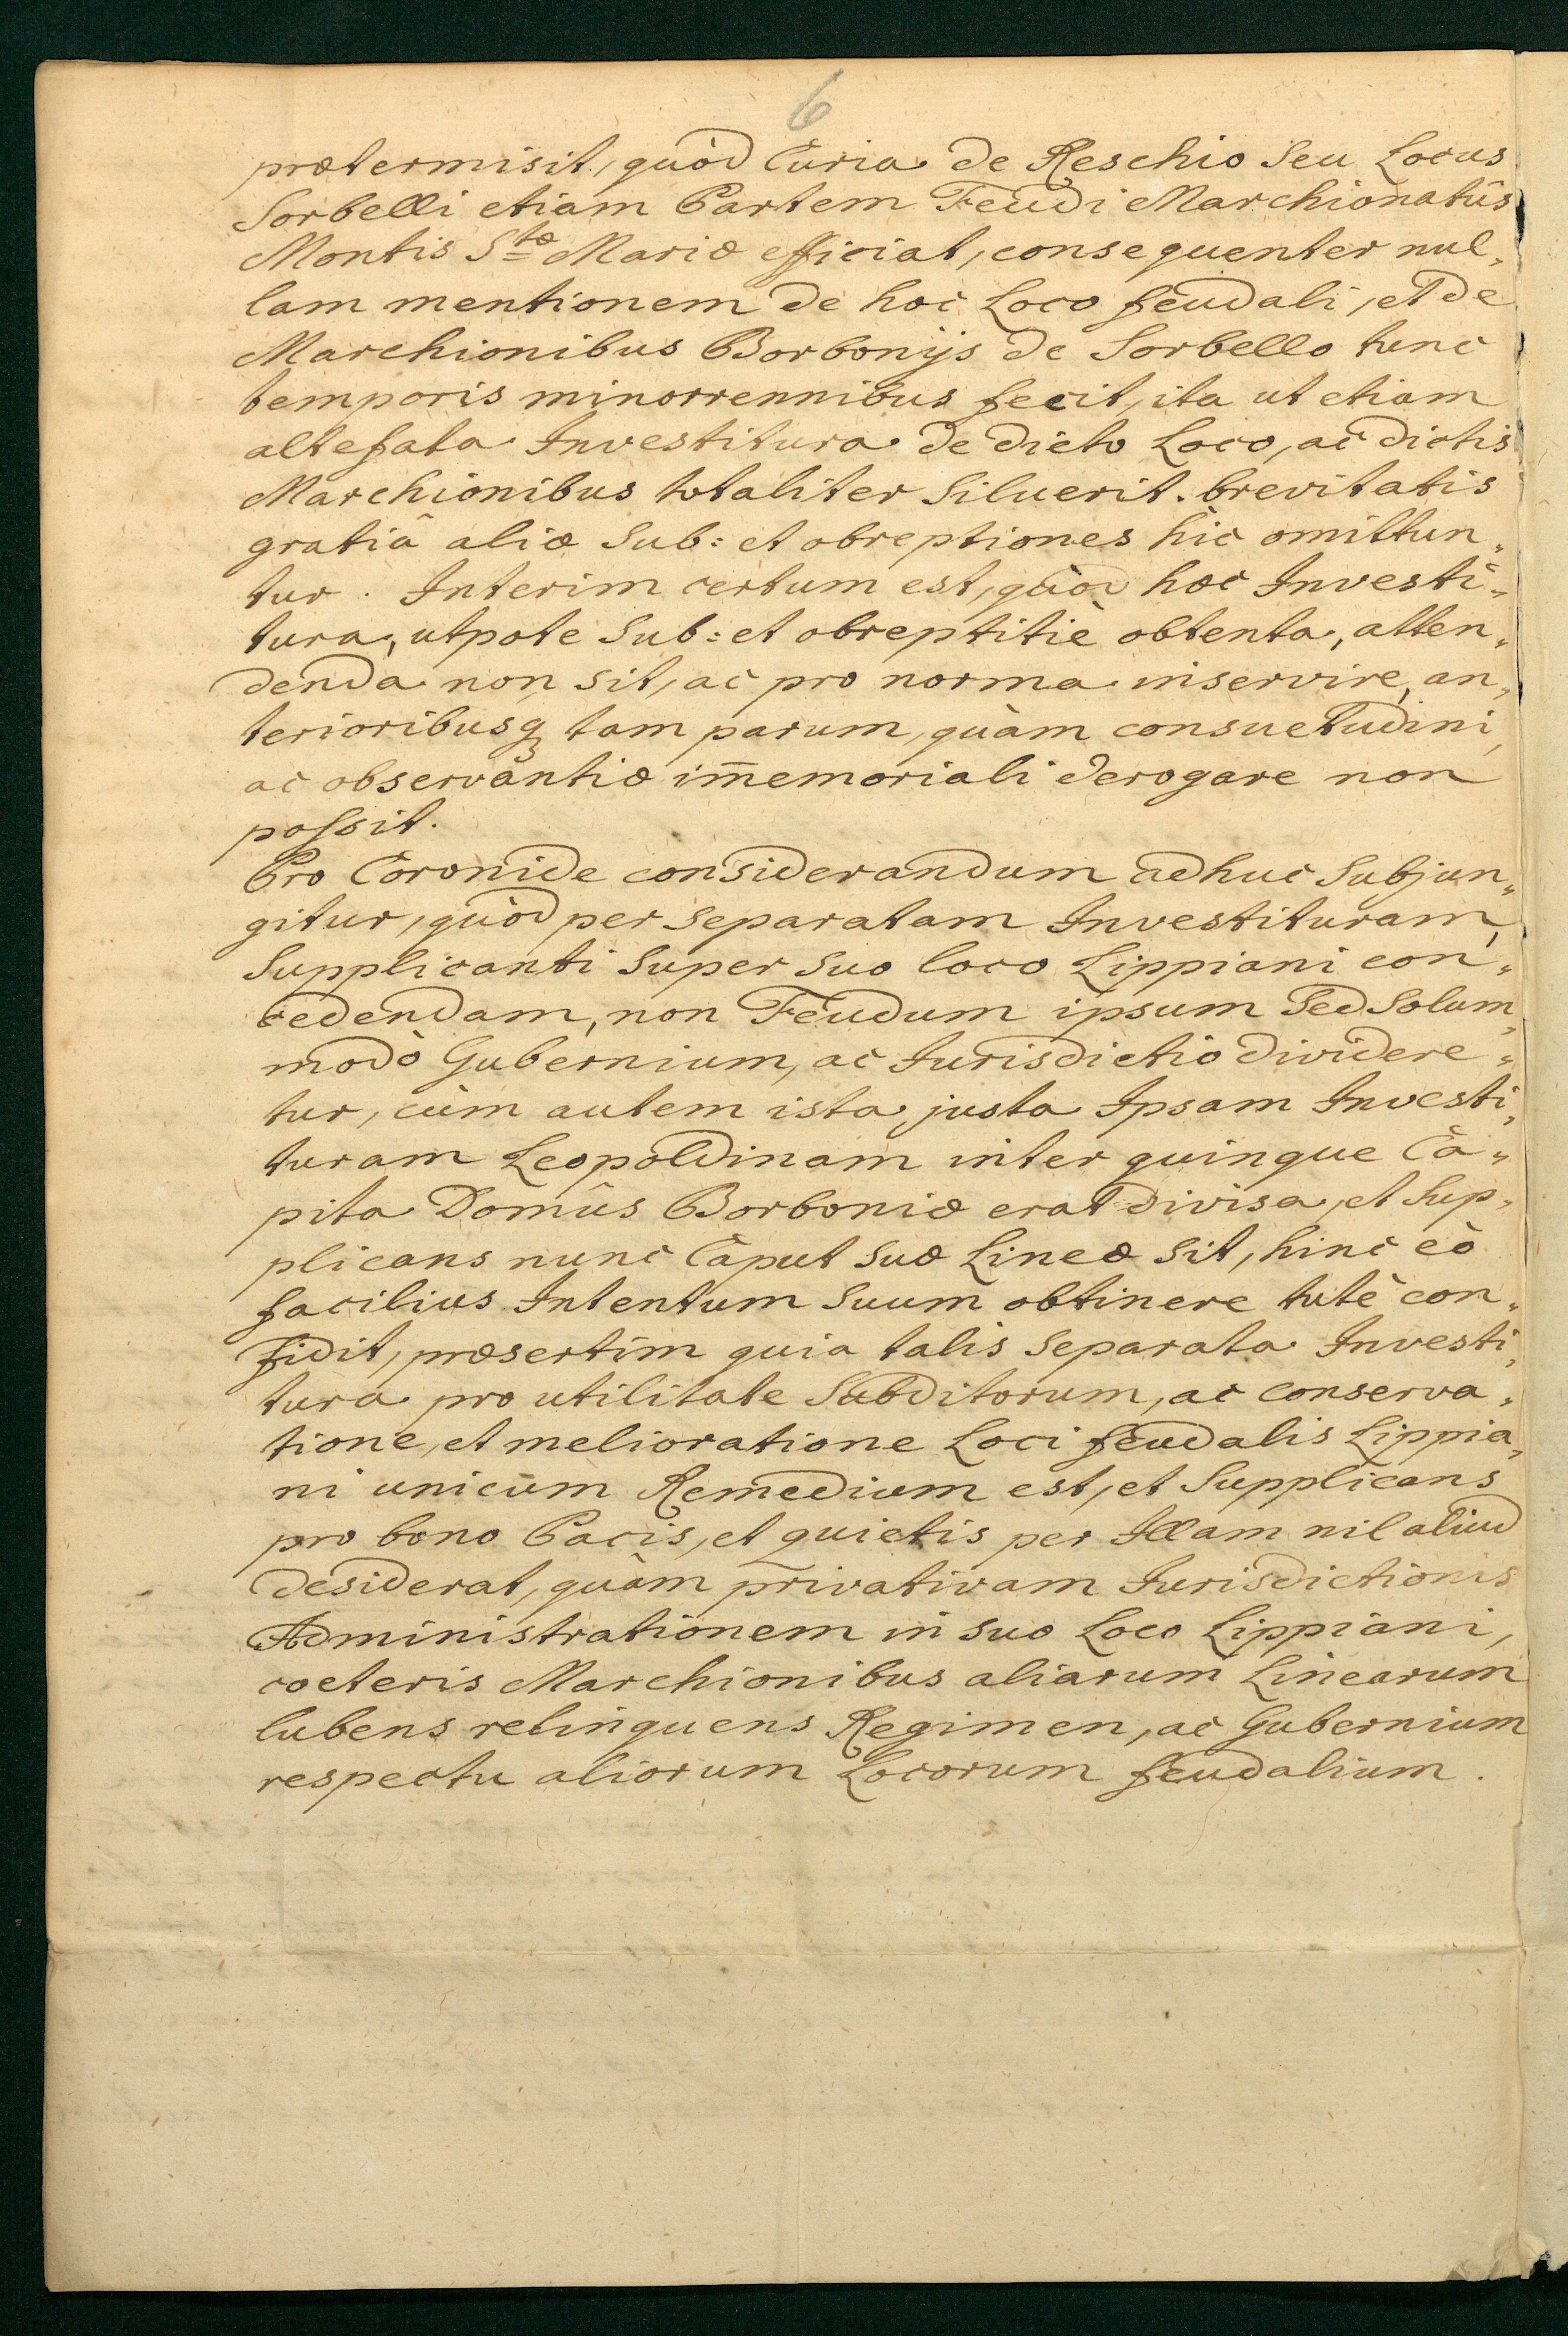 6
prætermisit, quòd Curia de Reschio seu Locus
Sorbelli etiam Partem Feudi Marchionatûs
Montis Stæ Mariæ efficiat, consequenter nul„
lam mentionem de hoc Loco feudali, et de
Marchionibus Borbonijs de Sorbello tunc
temporis minorrennibus fecit, ita ut etiam
altefata Investitura de dicto Loco, ac dictis
Marchionibus totaliter siluerit. brevitatis
gratiâ aliæ sub: et obreptiones hic omittun„
tur. Interim certum est, quòd hæc Investi„
tura, utpote sub: et obreptitiè obtenta, atten„
denda non sit, ac pro norma inservire, an„
terioribusq3 tam parum, quàm consuetudini,
ac observantiæ im̄emoriali derogare non
possit.
Pro Coronide considerandum adhuc subjun„
gitur, quòd per separatam Investituram,
Supplicanti super suo loco Lippiani con„
cedendam, non Feudum ipsum sed solum„
modò Gubernium, ac Jurisdictio dividere„
tur, cùm autem ista justa Ipsam Investi„
turam Leopoldinam inter quinque Ca„
pita Domûs Borboniæ erat divisa, et Sup„
plicans nunc Caput suæ Lineæ sit, hinc eò
facilius Intentum suum obtinere tutè con„
fidit, præsertim quia talis separata Investi„
tura pro utilitate Subditorum, ac conserva„
tione, et melioratione Loci feudalis Lippia„
ni unicum Remedium est, et Supplicans
pro bono Pacis, et quietis per Illam nil aliud
desiderat, quàm privativam Jurisdictionis
Administrationem in suo Loco Lippiani,
cæteris Marchionibus aliarum Linearum
lubens relinquens Regimen, ac Gubernium
respectu aliorum Locorum feudalium.